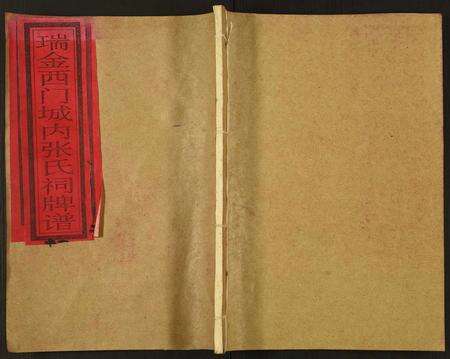 瑞金西门城内张氏祠牌谱